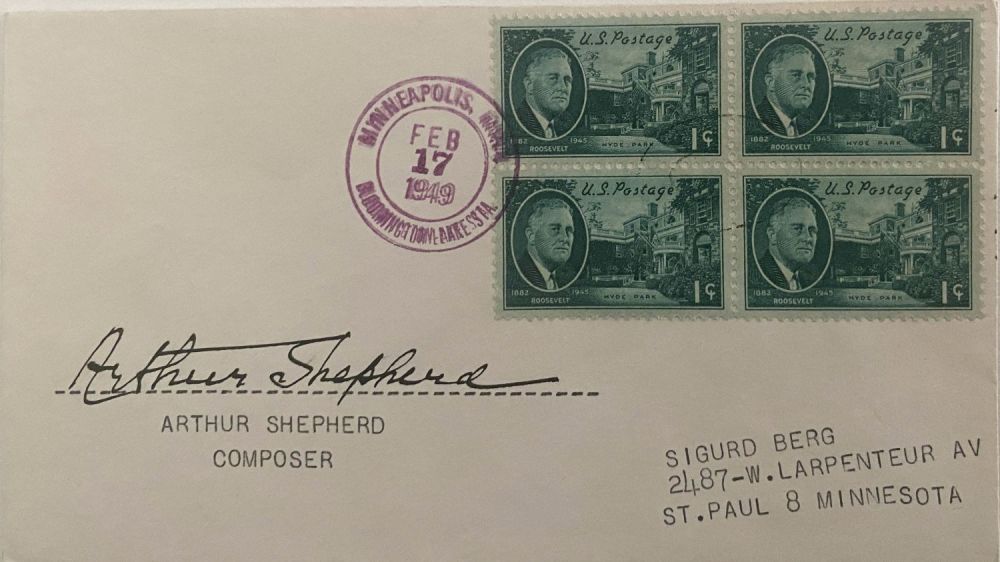 MINNEAPOLIS, MINN.
FEB
17
1949
BLOOMINGTON-LAKE STA.
U.S. Postage
1882 1945
ROOSEVELT HYDE PARK 1¢
U.S. Postage
1882 1945
ROOSEVELT HYDE PARK 1¢
U.S. Postage
1882 1945
ROOSEVELT HYDE PARK 1¢
U.S. Postage
1882 1945
ROOSEVELT HYDE PARK 1¢
Arthur Shepherd
ARTHUR SHEPHERD
COMPOSER
SIGURD BERG
2487-W.LARPENTEUR AV
ST.PAUL 8 MINNESOTA